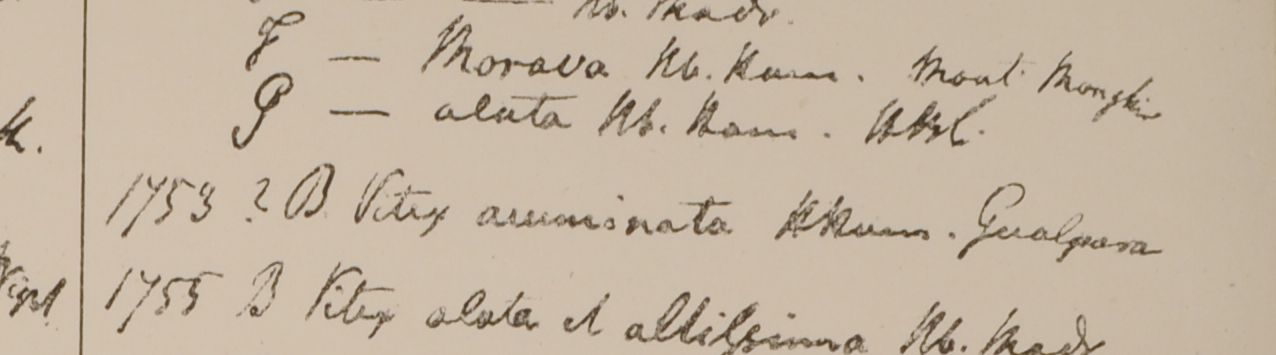 Hb. Madr.
F — Morava Hb. Ham. Mont Mongkir
P — alata Hb. Ham. HBC.
1753 ? B Vitex acuminata HHam. Gualpara
1755 B Vitex alata et altissima Hb. Madr